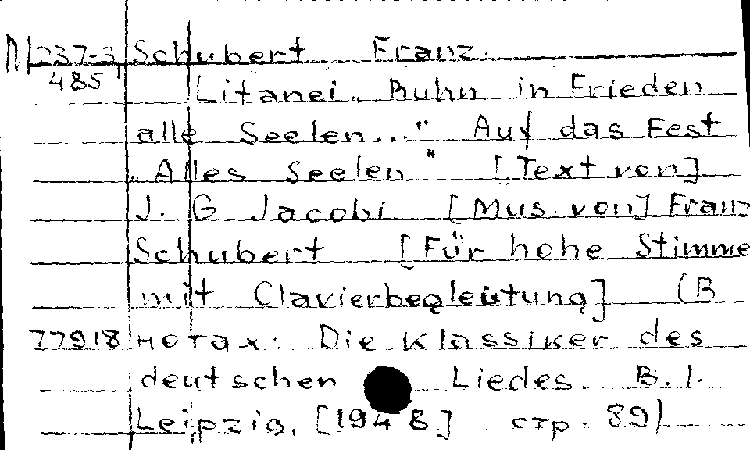 П 237-3 Schubert Franz.
485 Litanei. „Ruhn in Frieden
alle Seelen..." Auf das Fest
„Alles Seelen" [Text von]
J. G Jacobi [Mus. von] Franz
Schubert [Für hohe Stimme
mit Clavierbegleutung] (В
77918 нотах: Die Klassiker des
deutschen Liedes. B. 1.
Leipzig, [1948] стр. 89)